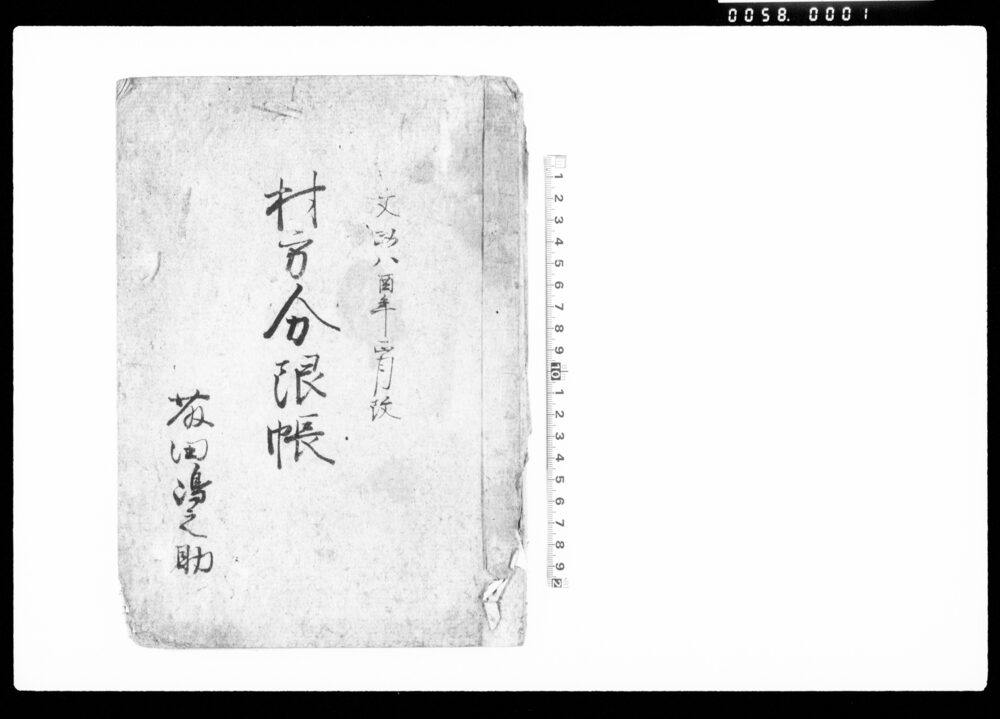 0058. 0001
文政八酉年正月改
村方分限帳
藤田鴻之助
1 2 3 4 5 6 7 8 9 10 1 2 3 4 5 6 7 8 9 2